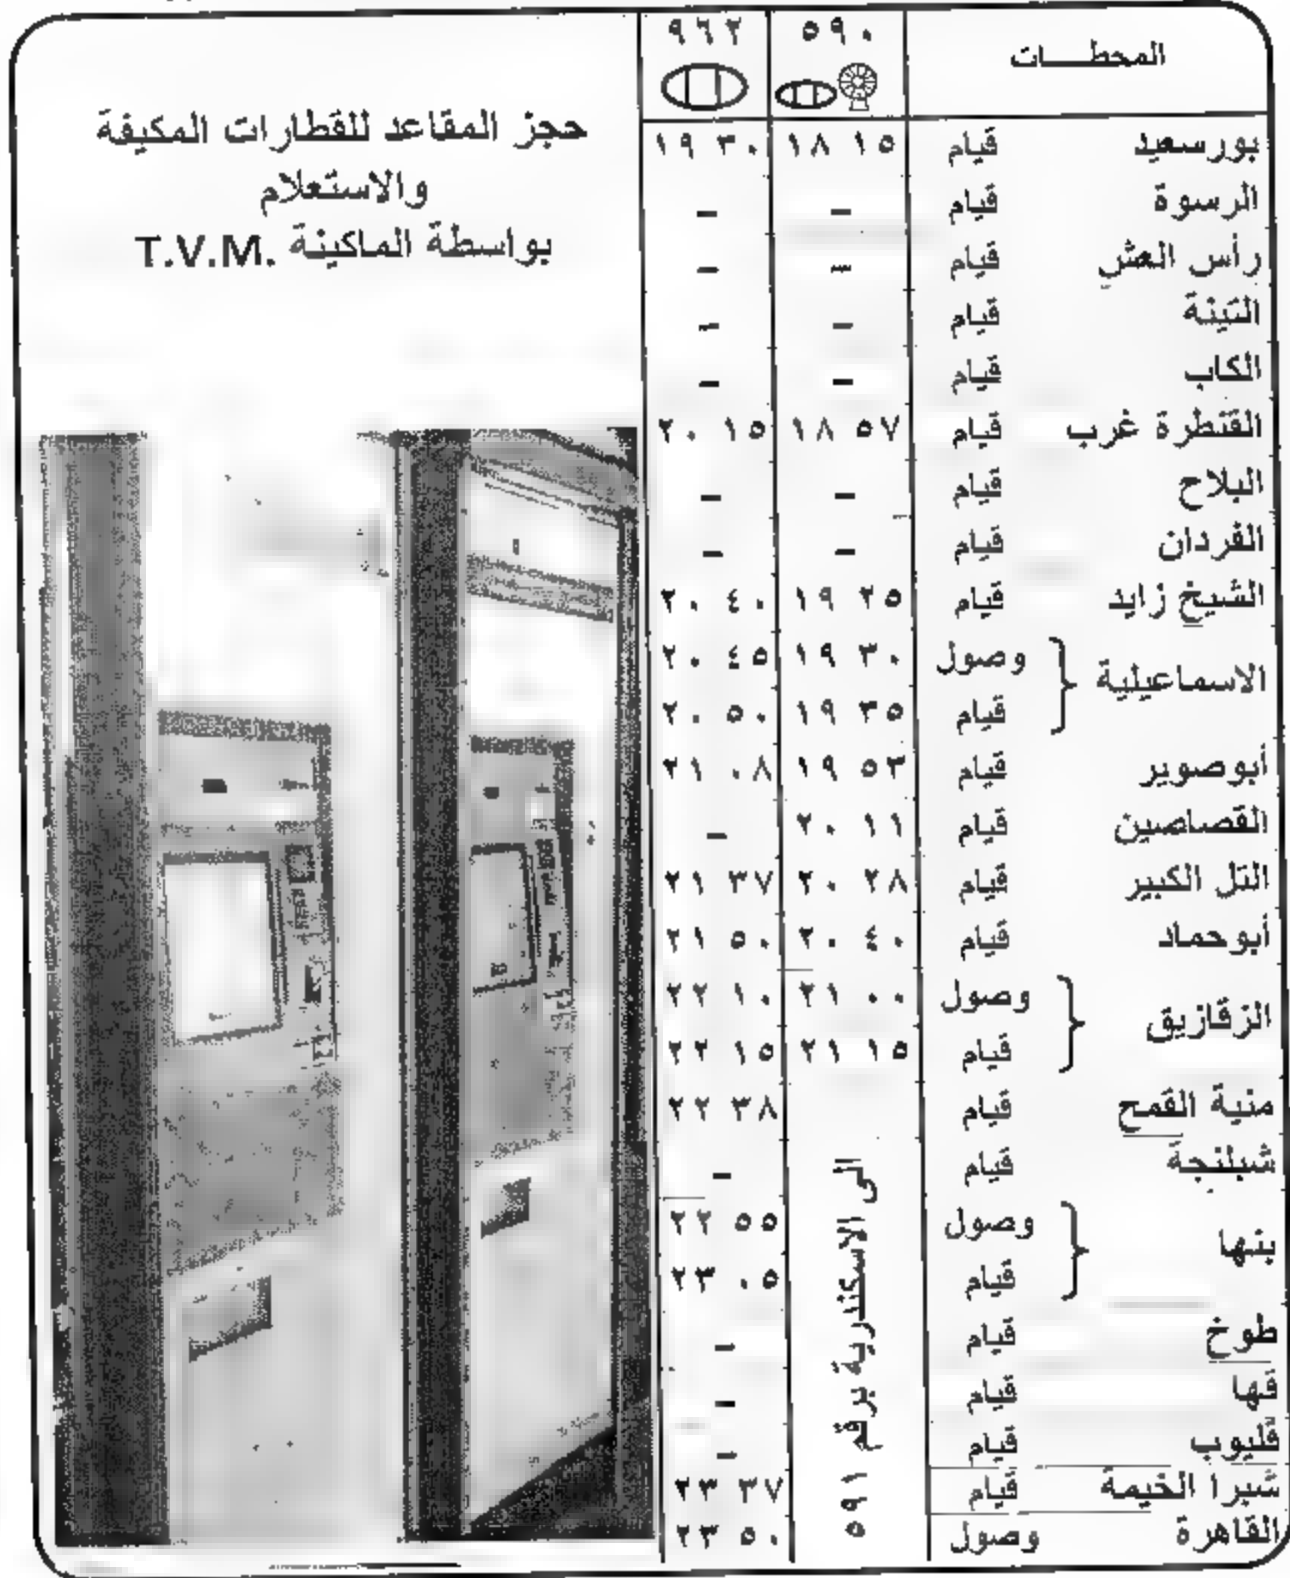 المحطــــات ٥٩٠ ٩٦٢
بورسعيد قيام ١٨ ١٥ ١٩ ٣٠
الرسوة قيام - -
رأس العش قيام - -
التينة قيام - -
الكاب قيام - -
القنطرة غرب قيام ١٨ ٥٧ ٢٠ ١٥
البلاح قيام - -
الفردان قيام - -
الشيخ زايد قيام ١٩ ٢٥ ٢٠ ٤٠
الاسماعيلية وصول ١٩ ٣٠ ٢٠ ٤٥
قيام ١٩ ٣٥ ٢٠ ٥٠
أبوصوير قيام ١٩ ٥٣ ٢١ ٠٨
القصاصين قيام ٢٠ ١١ -
التل الكبير قيام ٢٠ ٢٨ ٢١ ٣٧
أبوحماد قيام ٢٠ ٤٠ ٢١ ٥٠
الزقازيق وصول ٢١ ٠٠ ٢٢ ١٠
قيام ٢١ ١٥ ٢٢ ١٥
منية القمح قيام ٢٢ ٣٨
شبلنجة قيام -
بنها وصول ٢٢ ٥٥
قيام ٢٣ ٠٥
طوخ قيام -
قها قيام -
قليوب قيام -
شبرا الخيمة قيام ٢٣ ٣٧
القاهرة وصول ٢٣ ٥٠
الى الاسكندرية برقم ٥٩١
حجز المقاعد للقطارات المكيفة
والاستعلام
بواسطة الماكينة T.V.M.